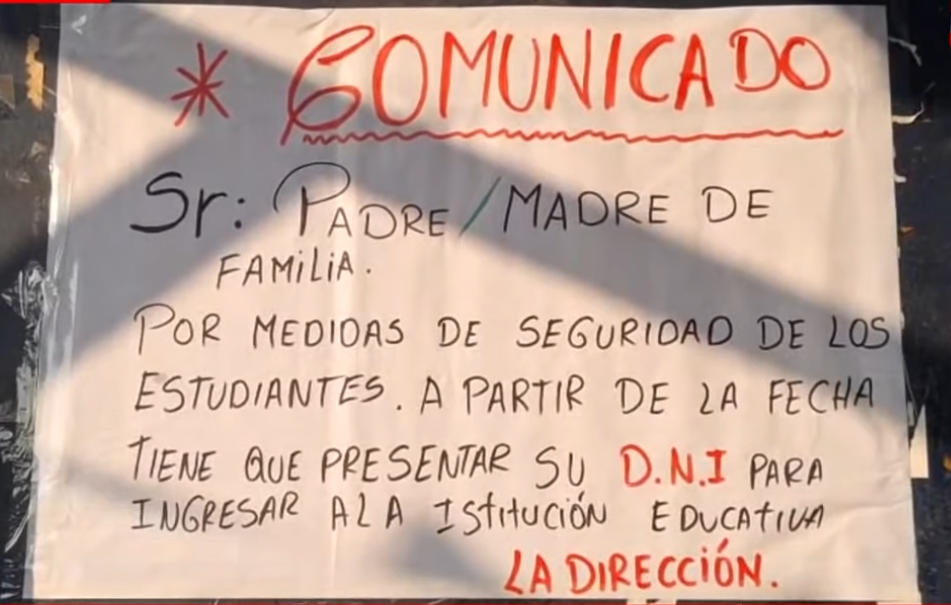 * COMUNICADO
Sr: PADRE/MADRE DE
FAMiLiA.
POR MEDIDAS DE SEGURIDAD DE LOS
ESTUDIANTES. A PARTIR DE LA FECHA
TIENE QUE PRESENTAR SU D.N.I PARA
INGRESAR ALA IStitUCIÓN EDUCATIVA
LA DIRECCIÓN.